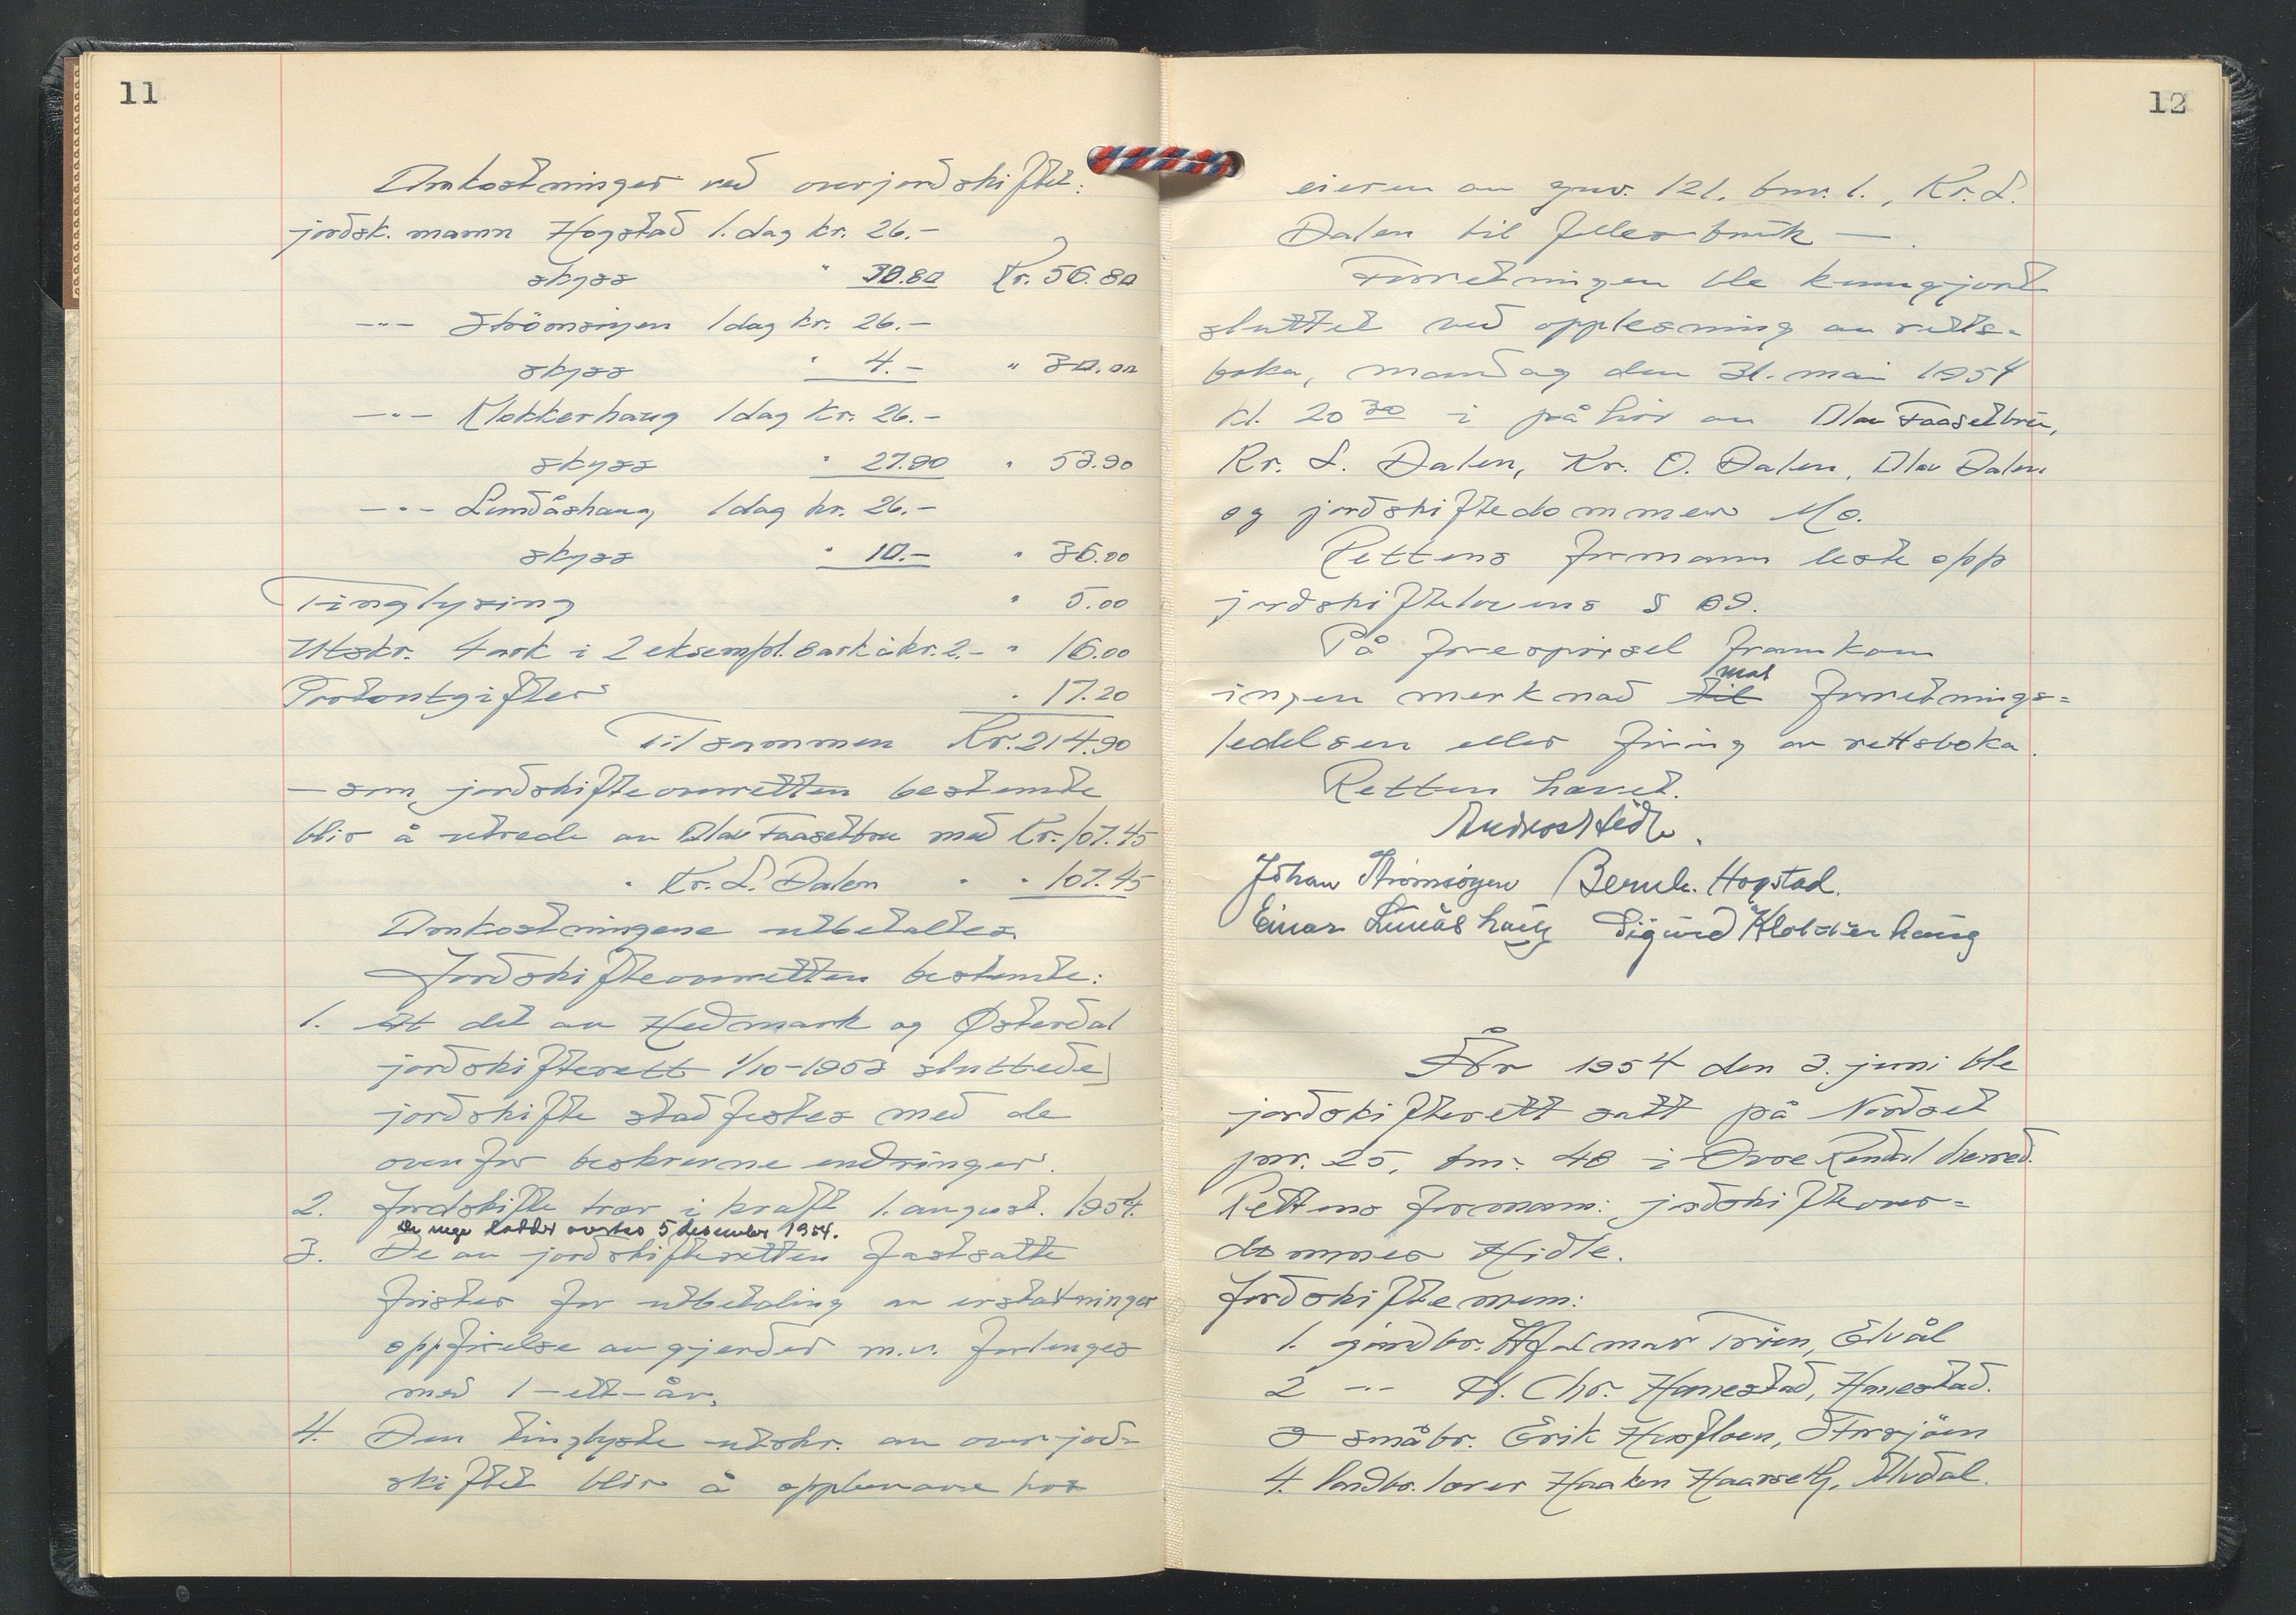 11
Omkostninger ved overjordskiftet:
jordsk. mann Hogstad 1. dag kr. 26.-
skyss " 30.80 Kr. 56.80
-"- Strömsöyen 1 dag kr. 26.-
skyss " 4.- " 30.00
-"- Klokkerhaug 1 dag kr. 26.-
skyss " 27.90 " 53.90
-"- Lundåshaug 1 dag kr. 26.-
skyss " 10.- " 36.00
Tinglysing " 5.00
Utskr. 4 ark i 2 eksempl. 8 ark à kr. 2.- " 16.00
Portoutgifter " 17.20
Tilsammen Kr. 214.90
- som jordskifteoverretten bestemte
blir å utrede av Olav Faasetbru med Kr. 107.45
" Kr. L. Dalen " " 107.45
Omkostningene utbetaltes.
Jordskifteoverretten bestemte:
1. At det av Hedmark og Østerdal
jordskifterett 1/10-1953 sluttede
jordskifte stadfestes med de
ovenfor beskrevne endringer.
2. Jordskifte trær i kraft 1. august. 1954.
De nye lodder overtas 5 desember 1954.
3. De av jordskifteretten fastsatte
frister for utbetaling av erstatninger
oppførelse av gjerder m.v. forlenges
med 1-ett-år.
4. Den tinglyste utskr. av overjord-
skiftet blir å oppbevare hos
12
eieren av gnr. 121. bnr. 1., Kr. L.
Dalen til felles bruk - .
Forretningen ble kunngjort
sluttet ved opplesning av retts-
boka, mandag den 31. mai 1954
kl. 20 30 i påhör av Olav Faasetbru,
Kr. L. Dalen, Kr. O. Dalen, Olav Dalen
og jordskiftedommer Mo.
Rettens formann leste opp
jordskiftelovens § 69.
På forespörsel framkom
mot
ingen merknad til forretnings=
ledelsen eller föring av rettsboka.
Retten hevet.
Johan Strömsöyen Bernh. Hogstad.
Einar Lundåshaug Sigurd Klokkerhaug
År 1954 den 3. juni ble
jordskifterett satt på Nordset
gnr. 25, bnr. 48 i Övre Rendal herred.
Rettens formann: jordskifteover=
dommer Hidle.
Jordskiftemenn:
1. gårdbr. Hjalmar Tröen, Elvål
2 -"- H. Chr. Hanestad, Hanestad.
3 småbr. Erik Husfloen, Storsjöen
4. landbr. lærer Haaken Haarseth, Alvdal.